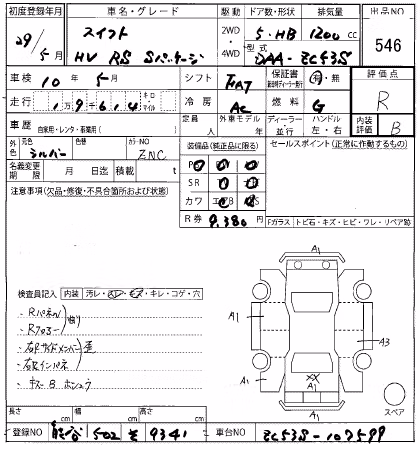 初度登録年月 車名・グレード 駆動 ドア数・形状 排気量 出品NO
29/5月 スイフト 2WD 5・HB 1200cc 546
HV RS Sパッケージ 4WD 型式 DAA-ZC53S
車検 10年 5月 シフト FAT 保証書 有・無 評価点
走行 1万9千614 キロ・マイル 冷房 AC 燃料 G R
車歴 自家用・レンタ・事業用( ) 定員 人 外車モデル 年 ディーラー・並行 ハンドル 左・右 内装評価 B
外色 元色 シルバー 色替 カラーNO ZNC 装備品(純正品に限る) セールスポイント(正常に作動するもの)
名義変更期限 月 日迄 積載 t
SR
注意事項(欠品・修復・不具合箇所および状態) カワ
R券 9,380円 Fガラス・トビ石・キズ・ヒビ・ワレ・リペア跡
A1
検査員記入 内装 汚レ・スレ・キズ・キレ・コゲ・穴
・Rパネル
・Rフロアー
A1 A3
・右Rサイドメンバー 歪
・右Rインパネ
・キズ B ホシュウ
XX
A1 A1
A1 スペア
長さ cm 幅 cm 高さ cm
登録NO 熊谷 502 そ 9341 車台NO ZC53S-107599